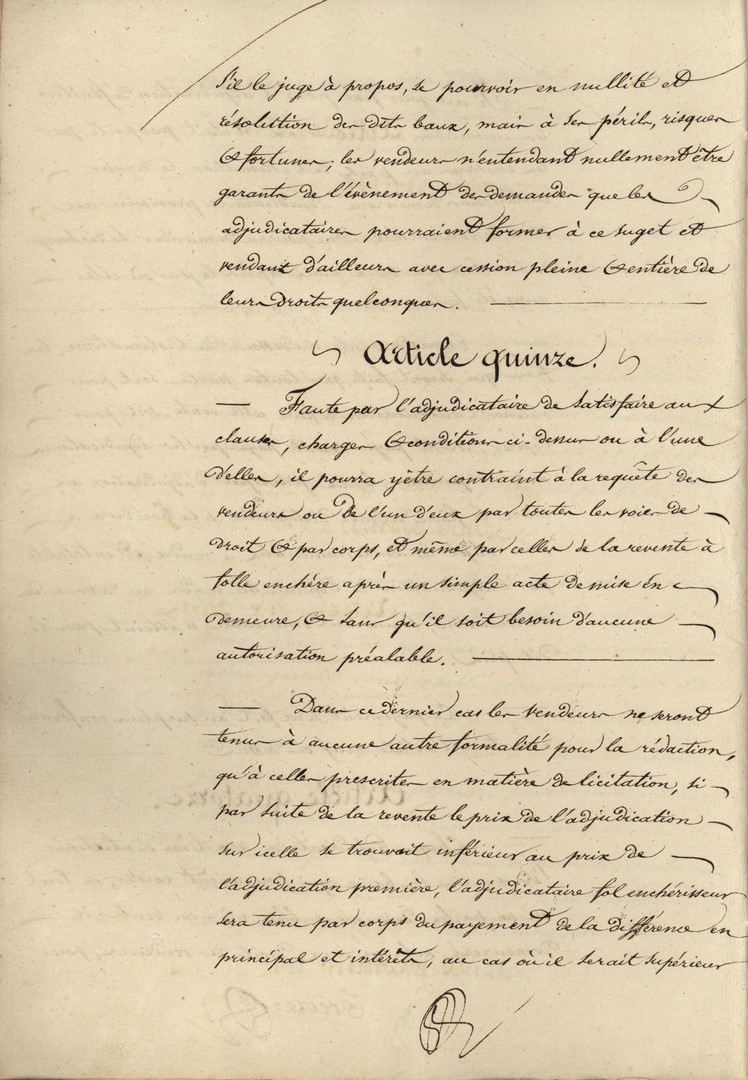 s'il le juge à propos, se pourvoir en nullité et
résoluttion des dits baux, mais à ses périls, risques
& fortunes; les vendeurs n'entendant nullement être
garants de l'évènement des demandes que les
adjudicataires pourraient former à ce suget et
vendant d'ailleurs avec cession pleine & entière de
leurs droits quelconques.
Article quinze.
— Faute par l'adjudicataire de satisfaire aux
clauses, charges & conditions ci-dessus ou à l'une
d'elles, il pourra y être contraint à la requête des
vendeurs ou de l'un d'eux par toutes les voies de
droit & par corps, et même par celles de la revente à
folle enchère après un simple acte de mise en
demeure, & sans qu'il soit besoin d'aucune
autorisation préalable.
— Dans ce dernier cas les vendeurs ne seront
tenus à aucune autre formalité pour la rédaction,
qu'à celles prescrites en matière de licitation, si
par suite de la revente le prix de l'adjudication
sur icelle se trouvait inférieur au prix de
l'adjudication première, l'adjudicataire fol enchérisseur
sera tenu par corps du payement de la différence en
principal et intérêts, au cas où il serait supérieur